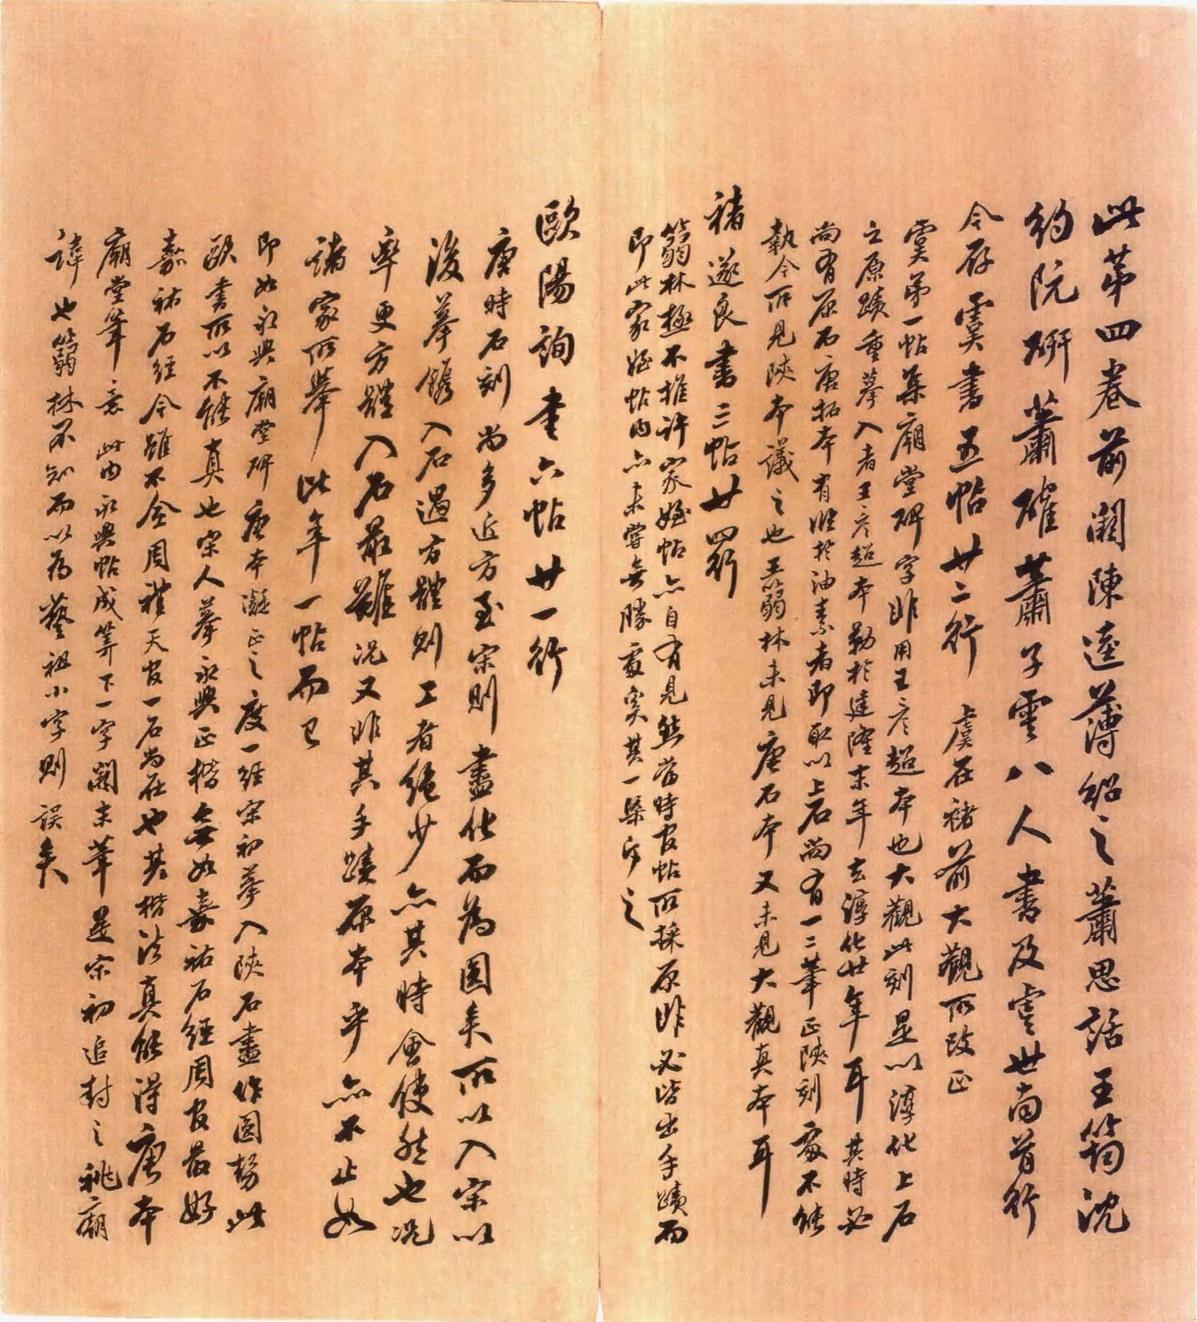 此第四卷前闕陳逵薄紹之蕭思話王筠沈
約阮研蕭確蕭子雲八人書及虞世南首行
今存虞書五帖廿二行 虞在褚前大觀所改正
虞第一帖集廟堂碑字非用王彦超本也大觀此刻是以淳化上石
之原蹟重摹入者王彦超本勒於建隆末年去淳化廿年耳其時必
尚有原石唐拓本有臨於油素者即取以上石尚有一二筆正陝刻處不能
執今所見陝本議之也王蒻林未見唐石本又未見大觀真本耳
褚遂良書三帖廿四行
蒻林極不推許家姪帖亦自有見然當時官帖所採原非必皆出手蹟而
即此家姪帖内亦未嘗無勝處矣其一槩斥之
歐陽詢書六帖廿一行
唐時石刻尚多近方至宋則盡化而為圓矣所以入宋以
後摹鐫入石過方體則工者絶少亦其時會使然也况
率更方體入石最難况又非其手蹟原本乎亦不止如
諸家所舉比年一帖而已
即如永興廟堂碑唐本凝正之度一經宋初摹入陝石盡作圓勢此
歐書所以不能真也宋人摹永興正楷無如嘉祐石經周官最好
嘉祐石經今雖不全周禮天官一石尚在也其楷法真能得唐本
廟堂筆意 此内永興帖成等下一字闕末筆是宋初追封之祧廟
諱也蒻林不知而以為藝祖小字則誤矣